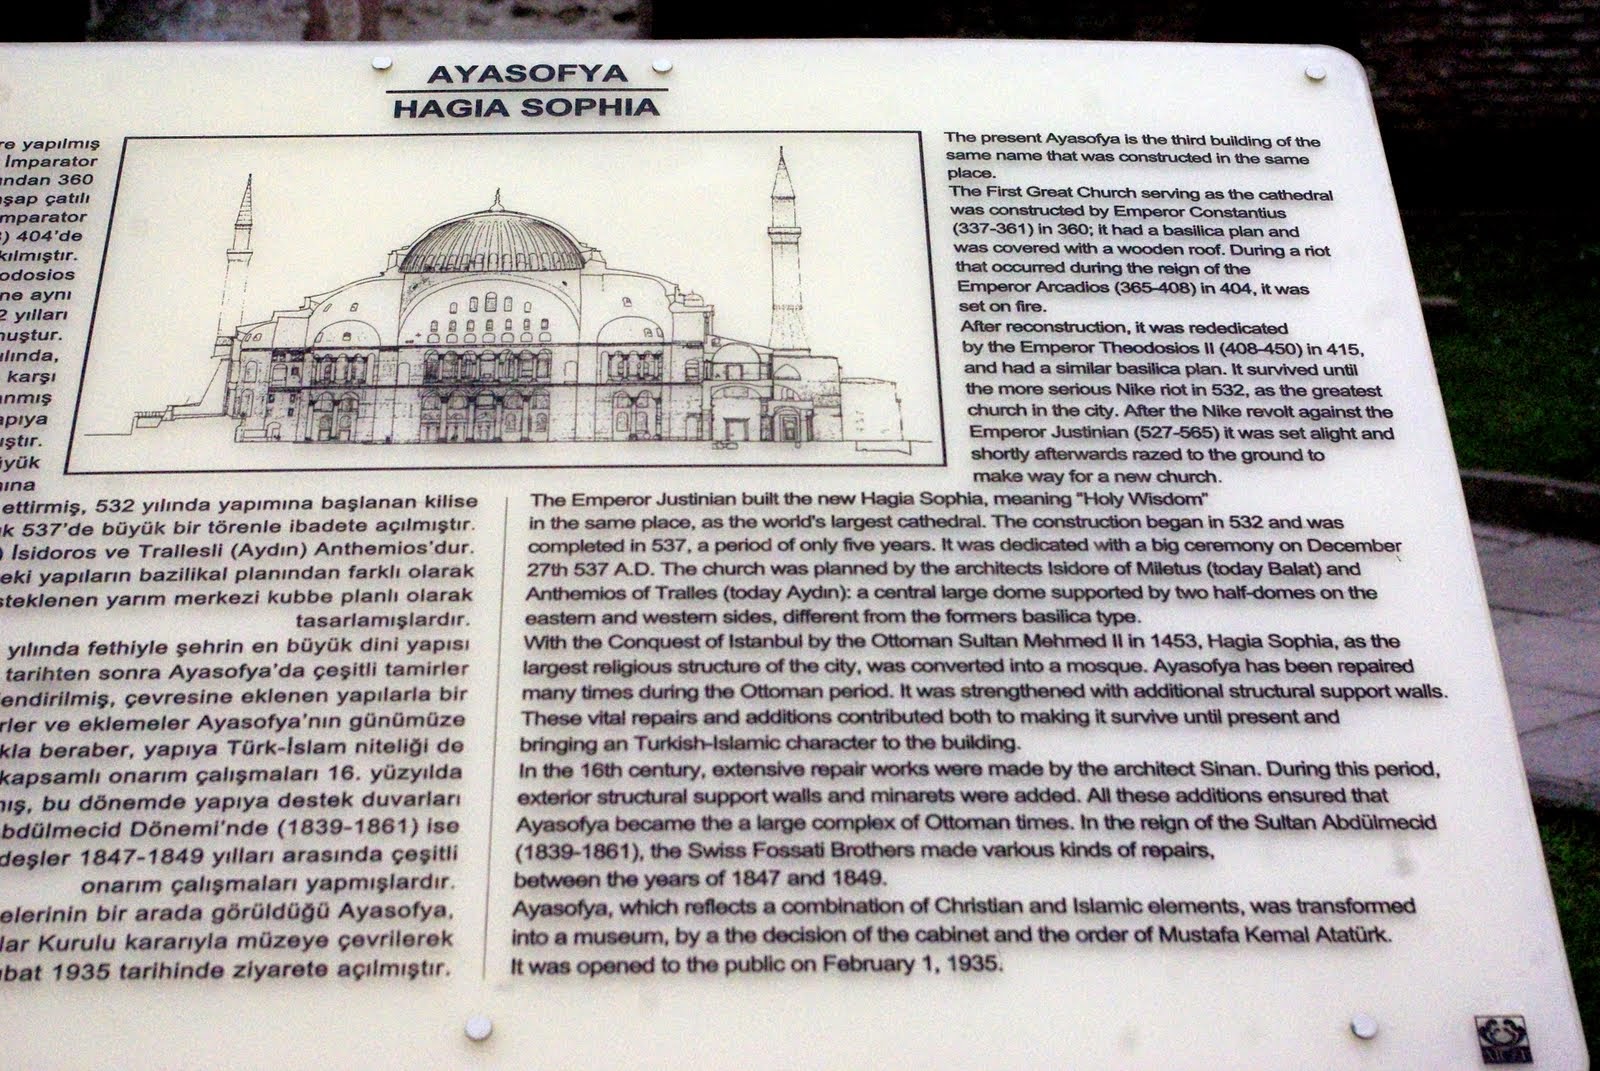 AYASOFYA
HAGIA SOPHIA
re yapılmış
İmparator
ından 360
şap çatılı
mparator
) 404'de
kılmıştır.
odosios
ne aynı
2 yılları
muştur.
ılında,
karşı
anmış
apıya
ıştır.
üyük
ına
ettirmiş, 532 yılında yapımına başlanan kilise
k 537'de büyük bir törenle ibadete açılmıştır.
) İsidoros ve Trallesli (Aydın) Anthemios'dur.
eki yapıların bazilikal planından farklı olarak
steklenen yarım merkezi kubbe planlı olarak
tasarlamışlardır.
yılında fethiyle şehrin en büyük dini yapısı
tarihten sonra Ayasofya'da çeşitli tamirler
lendirilmiş, çevresine eklenen yapılarla bir
rler ve eklemeler Ayasofya'nın günümüze
kla beraber, yapıya Türk-İslam niteliği de
kapsamlı onarım çalışmaları 16. yüzyılda
mış, bu dönemde yapıya destek duvarları
bdülmecid Dönemi'nde (1839-1861) ise
deşler 1847-1849 yılları arasında çeşitli
onarım çalışmaları yapmışlardır.
elerinin bir arada görüldüğü Ayasofya,
lar Kurulu kararıyla müzeye çevrilerek
ubat 1935 tarihinde ziyarete açılmıştır.
The present Ayasofya is the third building of the
same name that was constructed in the same
place.
The First Great Church serving as the cathedral
was constructed by Emperor Constantius
(337-361) in 360; it had a basilica plan and
was covered with a wooden roof. During a riot
that occurred during the reign of the
Emperor Arcadios (365-408) in 404, it was
set on fire.
After reconstruction, it was rededicated
by the Emperor Theodosios II (408-450) in 415,
and had a similar basilica plan. It survived until
the more serious Nike riot in 532, as the greatest
church in the city. After the Nike revolt against the
Emperor Justinian (527-565) it was set alight and
shortly afterwards razed to the ground to
make way for a new church.
The Emperor Justinian built the new Hagia Sophia, meaning "Holy Wisdom"
in the same place, as the world's largest cathedral. The construction began in 532 and was
completed in 537, a period of only five years. It was dedicated with a big ceremony on December
27th 537 A.D. The church was planned by the architects Isidore of Miletus (today Balat) and
Anthemios of Tralles (today Aydın): a central large dome supported by two half-domes on the
eastern and western sides, different from the formers basilica type.
With the Conquest of Istanbul by the Ottoman Sultan Mehmed II in 1453, Hagia Sophia, as the
largest religious structure of the city, was converted into a mosque. Ayasofya has been repaired
many times during the Ottoman period. It was strengthened with additional structural support walls.
These vital repairs and additions contributed both to making it survive until present and
bringing an Turkish-Islamic character to the building.
In the 16th century, extensive repair works were made by the architect Sinan. During this period,
exterior structural support walls and minarets were added. All these additions ensured that
Ayasofya became the a large complex of Ottoman times. In the reign of the Sultan Abdülmecid
(1839-1861), the Swiss Fossati Brothers made various kinds of repairs,
between the years of 1847 and 1849.
Ayasofya, which reflects a combination of Christian and Islamic elements, was transformed
into a museum, by a the decision of the cabinet and the order of Mustafa Kemal Atatürk.
It was opened to the public on February 1, 1935.